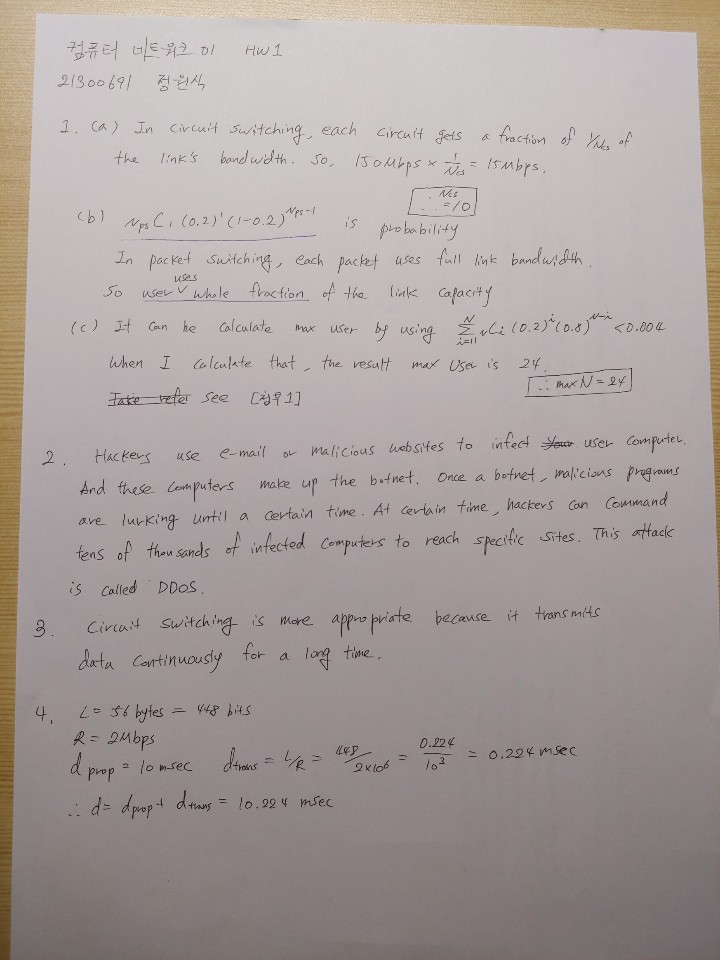 컴퓨터 네트워크 01 HW1
21300691 정원식
1. (a) In circuit switching, each circuit gets a fraction of 1/Ncs of
the link's bandwidth. So, 150Mbps × 1/Ncs = 15Mbps.
∴ Ncs = 10
(b) NpsC1 (0.2)^1 (1-0.2)^(Nps-1) is probability
In packet switching, each packet uses full link bandwidth.
So user uses whole fraction of the link capacity
(c) It can be calculate max user by using ∑_{i=11}^{N} NCi (0.2)^i (0.8)^(N-i) < 0.004
When I calculate that, the result max user is 24.
∴ max N = 24
Take refer see [첨부1]
2. Hackers use e-mail or malicious websites to infect your user computer.
And these computers make up the botnet. Once a botnet, malicious programs
are lurking until a certain time. At certain time, hackers can command
tens of thousands of infected computers to reach specific sites. This attack
is called DDOS.
3. Circuit switching is more appropriate because it transmits
data continuously for a long time.
4. L = 56 bytes = 448 bits
R = 2Mbps
d prop = 10 msec d trans = L/R = 448/2×10^6 = 0.224/10^3 = 0.224 msec
∴ d = d prop + d trans = 10.224 msec